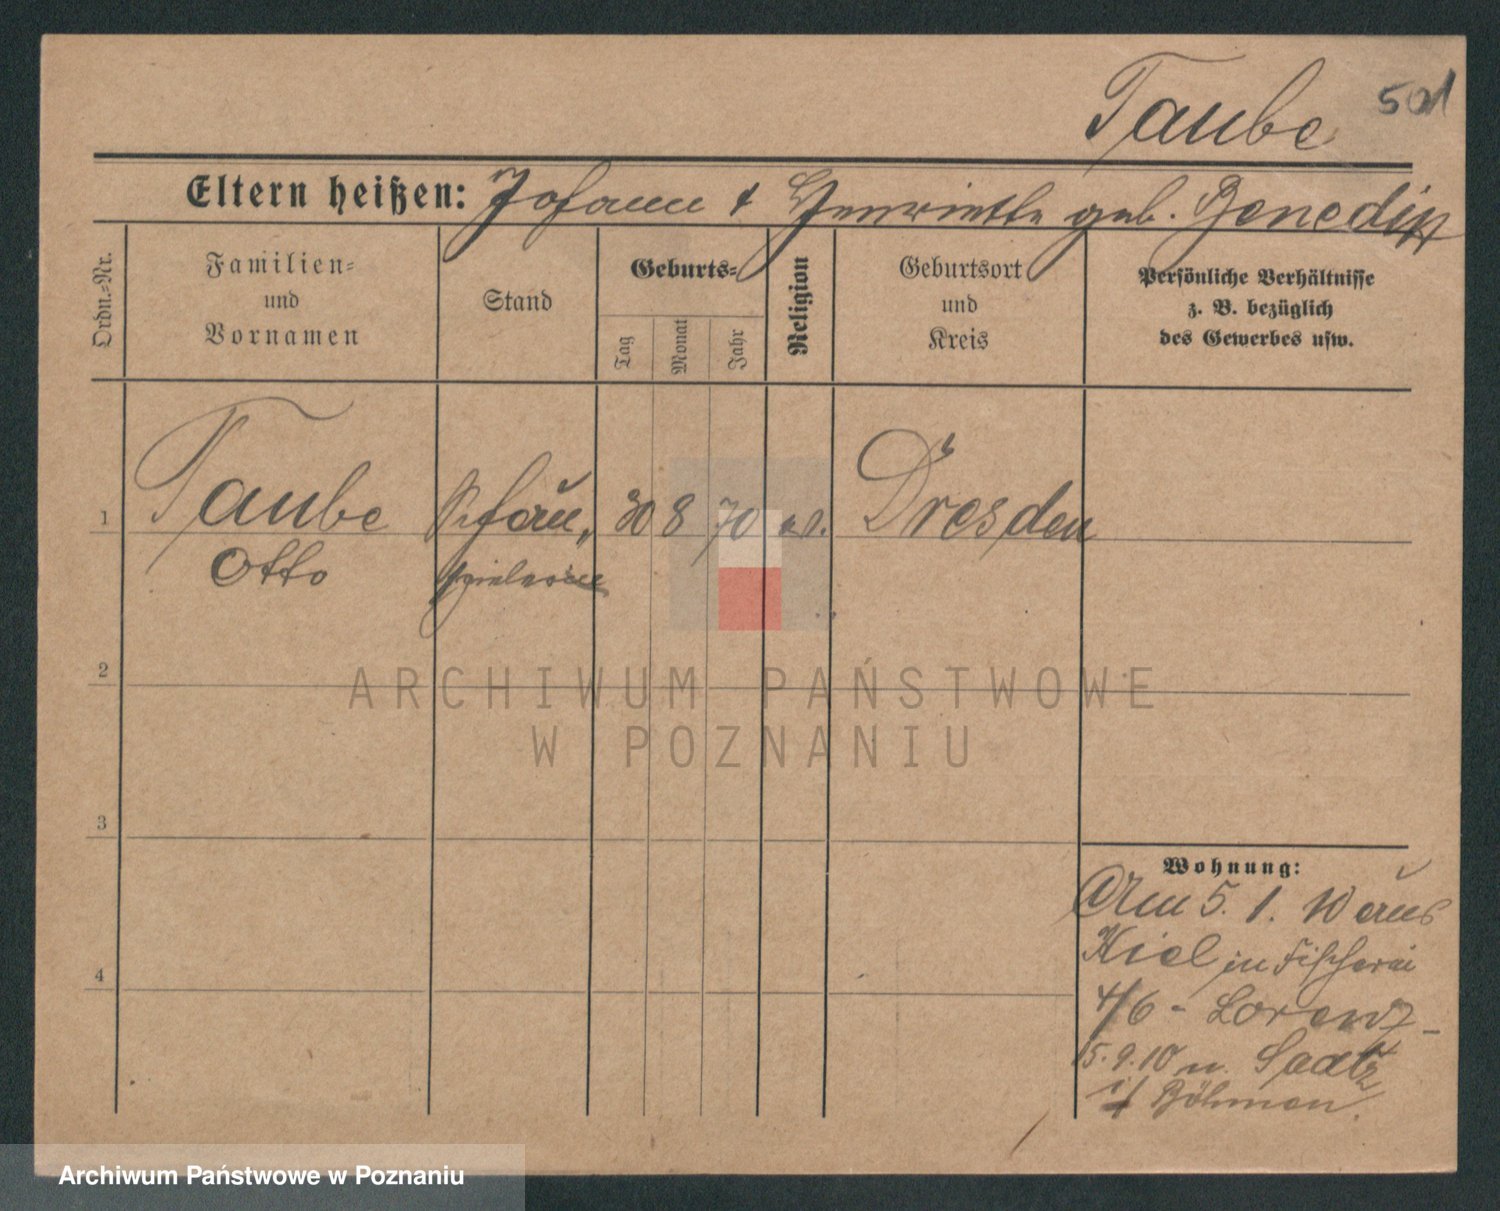 Taube 501
Eltern heißen: Johann & Henriette geb. Benedix
Ordn.-Nr.
Familien-
und
Vornamen
Stand
Geburts-
Tag
Monat
Jahr
Religion
Geburtsort
und
Kreis
Persönliche Verhältnisse
z. B. bezüglich
des Gewerbes usw.
1 Taube Schau- 30 8 70 ev. Dresden
Otto
2
3
4
Wohnung:
Am 5. 1. 10 aus
Kiel in Fischerei
4/6 - Lorenz -
15.9.10 n. Saatz
i/ Böhmen.
ARCHIWUM PAŃSTWOWE
W POZNANIU
Archiwum Państwowe w Poznaniu